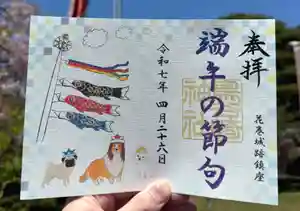 奉拝
花巻城跡鎮座
端午の節句
令和七年 四月二十六日